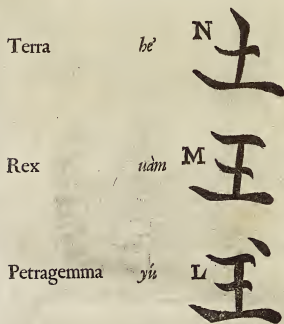 Terra hé N 土
Rex uàm M 王
Petragemma yú L 玉